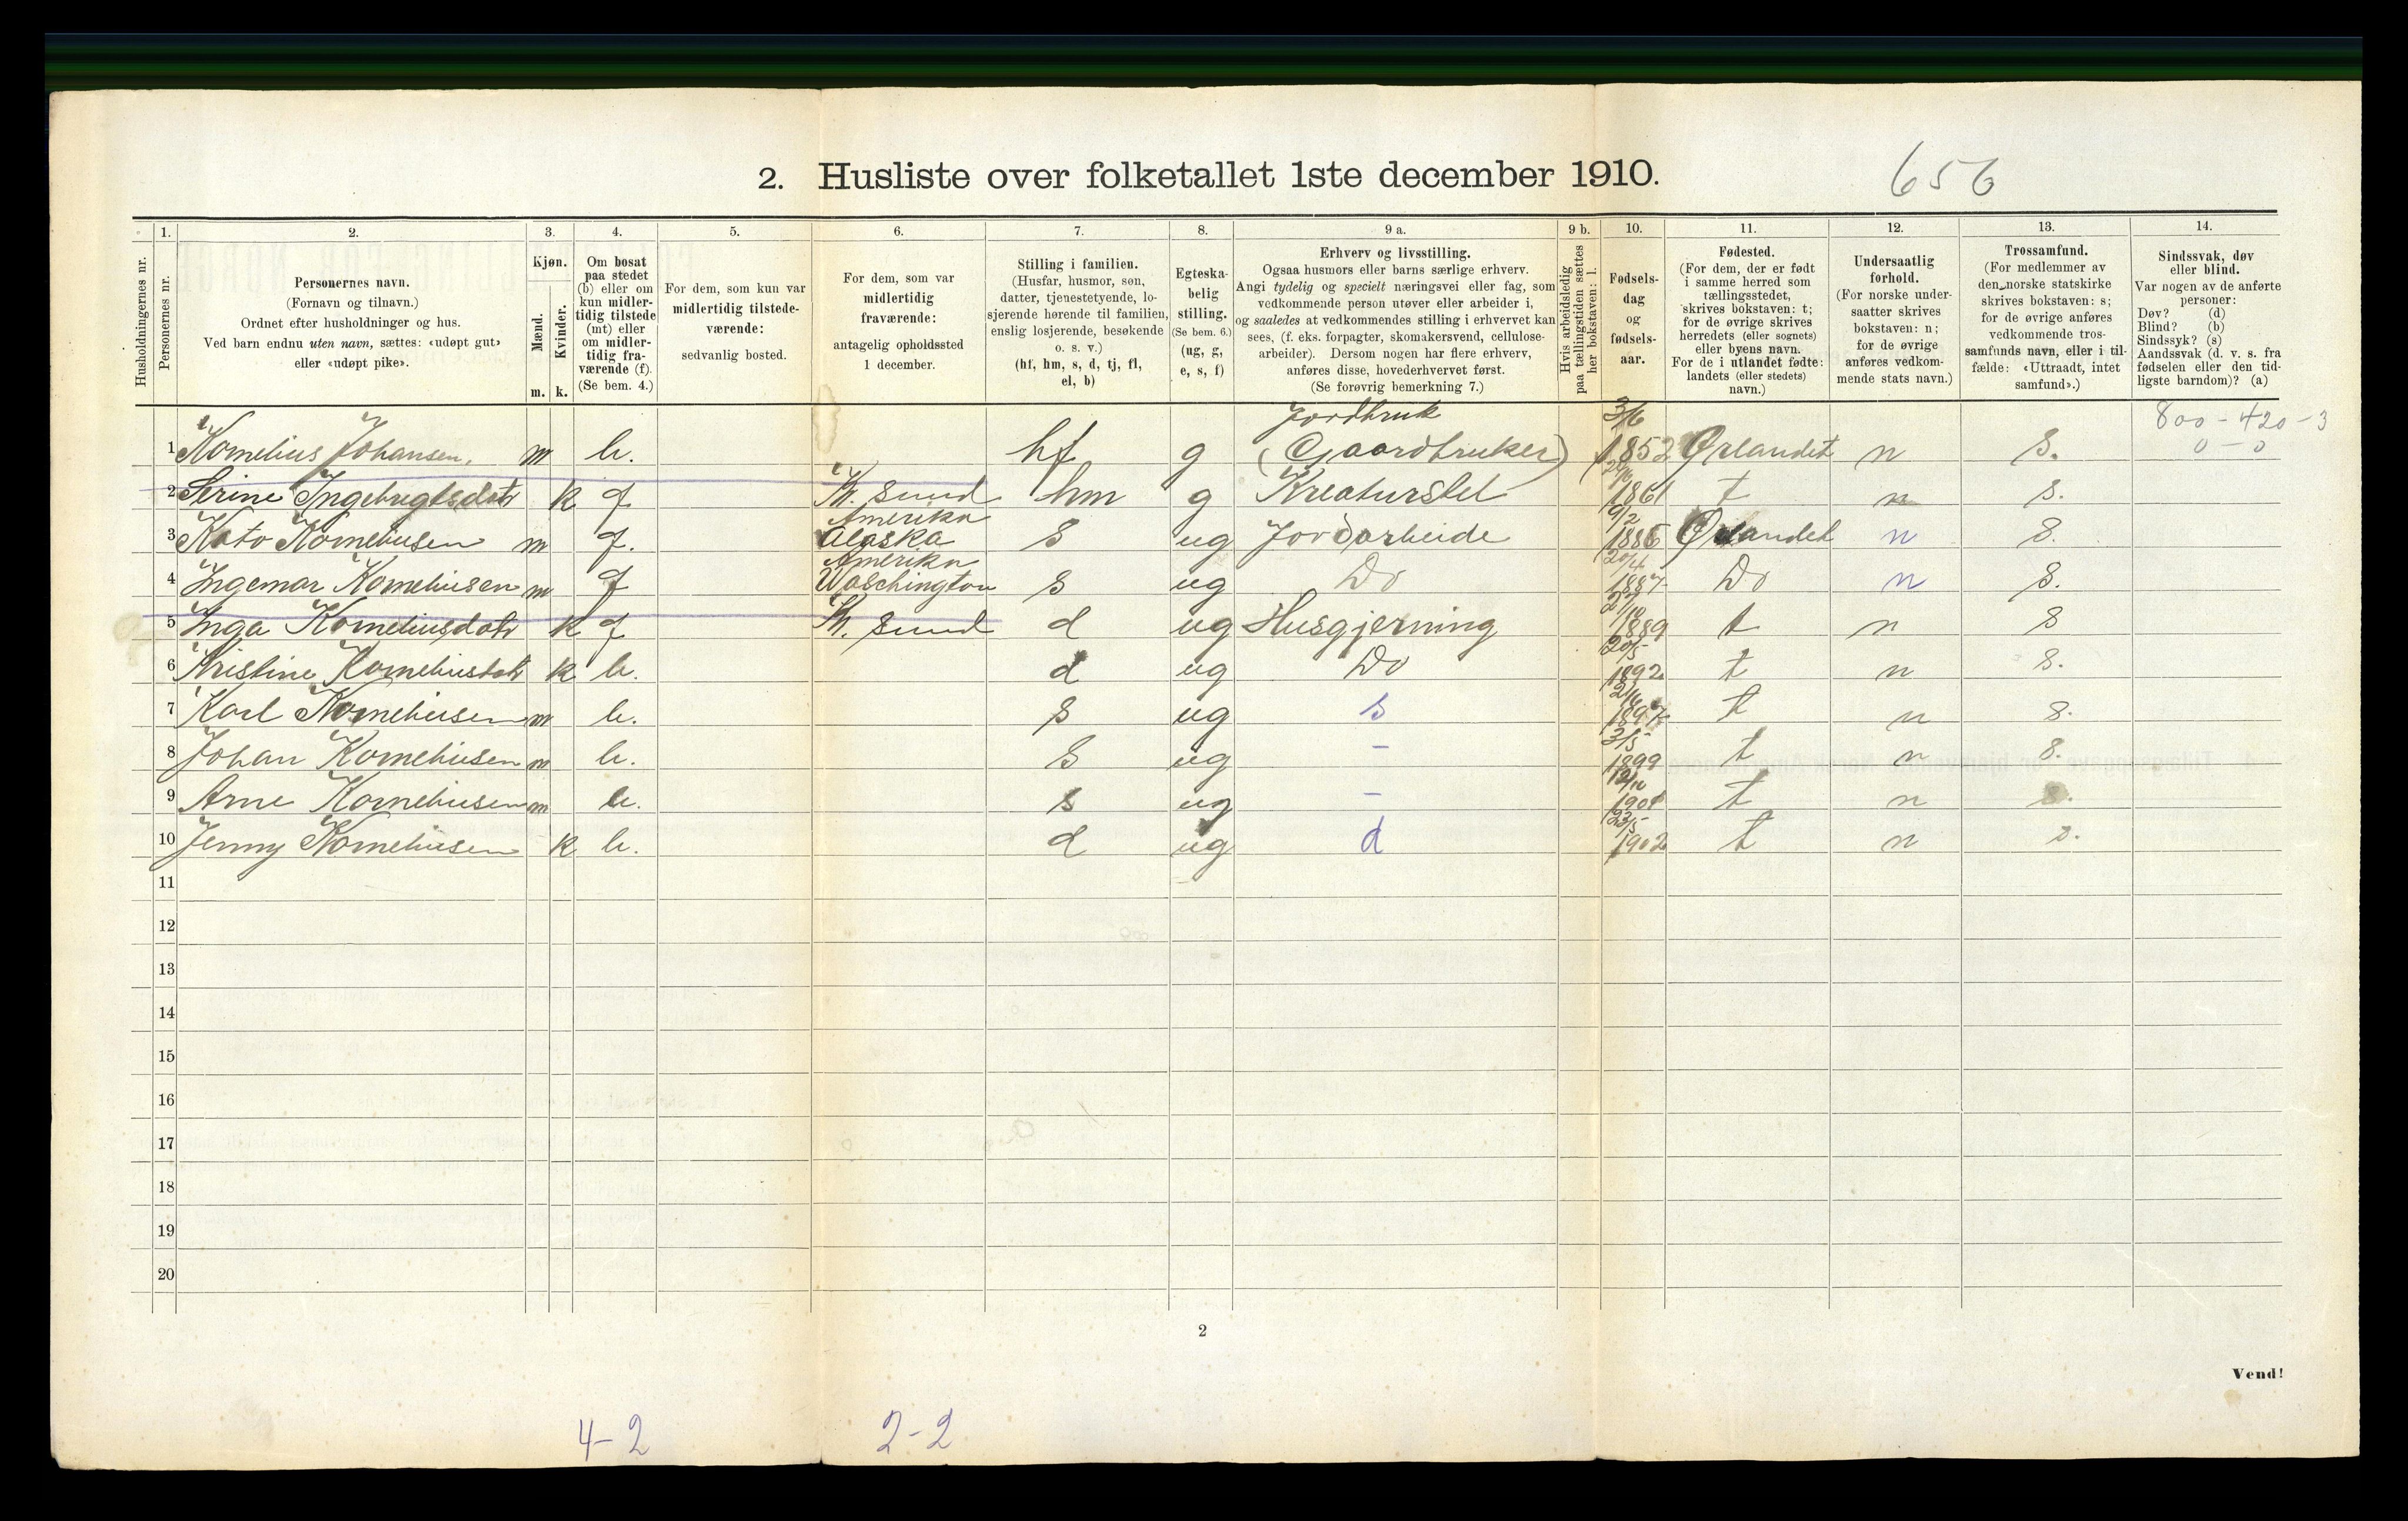 2. Husliste over folketallet 1ste december 1910.
656
1. 2. 3. 4. 5. 6. 7. 8. 9 a. 9 b. 10. 11. 12. 13. 14.
Husholdningernes nr.
Personernes nr.
Personernes navn.
(Fornavn og tilnavn.)
Ordnet efter husholdninger og hus.
Ved barn endnu uten navn, sættes: «udøpt gut»
eller «udøpt pike».
Kjøn.
Mænd.
Kvinder.
m. k.
Om bosat
paa stedet
(b) eller om
kun midler-
tidig tilstede
(mt) eller
om midler-
tidig fra-
værende (f).
(Se bem. 4.)
For dem, som kun var
midlertidig tilstede-
værende:
sedvanlig bosted.
For dem, som var
midlertidig
fraværende:
antagelig opholdssted
1 december.
Stilling i familien.
(Husfar, husmor, søn,
datter, tjenestetyende, lo-
sjerende hørende til familien,
enslig losjerende, besøkende
o. s. v.)
(hf, hm, s, d, tj, fl,
el, b)
Egteska-
belig
stilling.
(Se bem. 6.)
(ug, g,
e, s, f)
Erhverv og livsstilling.
Ogsaa husmors eller barns særlige erhverv.
Angi tydelig og specielt næringsvei eller fag, som
vedkommende person utøver eller arbeider i,
og saaledes at vedkommendes stilling i erhvervet kan
sees, (f. eks. forpagter, skomakersvend, cellulose-
arbeider). Dersom nogen har flere erhverv,
anføres disse, hovederhvervet først.
(Se forøvrig bemerkning 7.)
Hvis arbeidsledig
paa tællingstiden sættes
her bokstaven: l.
Fødsels-
dag
og
fødsels-
aar.
Fødested.
(For dem, der er født
i samme herred som
tællingsstedet,
skrives bokstaven: t;
for de øvrige skrives
herredets (eller sognets)
eller byens navn.
For de i utlandet fødte:
landets (eller stedets)
navn.)
Undersaatlig
forhold.
(For norske under-
saatter skrives
bokstaven: n;
for de øvrige
anføres vedkom-
mende stats navn.)
Trossamfund.
(For medlemmer av
den norske statskirke
skrives bokstaven: s;
for de øvrige anføres
vedkommende tros-
samfunds navn, eller i til-
fælde: «Uttraadt, intet
samfund».)
Sindssvak, døv
eller blind.
Var nogen av de anførte
personer:
Døv? (d)
Blind? (b)
Sindssyk? (s)
Aandssvak (d. v. s. fra
fødselen eller den tid-
ligste barndom)? (a)
Jordbruk 3/6 800 - 420 - 3
1 Kornelius Johansen. m b. hf g (Gaardbruker) 1852 Ørlandet n s. 0 - 0
2 Serine Ingebrigtsdatr k f Kr. sund hm g Kreaturstel 1861 t n s.
Amerika 9/2
3 Kato Korneliusen m f. Alaska s ug Jordarbeide 1886 Ørlandet n s.
Amerika 20/4
4 Ingemar Korneliusen m f Waschington s ug Do 1887 Do n s.
27/10
5 Inga Korneliusdatr k f Kr. sund d ug Husgjerning 1889 t n s
20/5
6 Kristine Korneliusdatr k b. d ug Do 1892 t n s.
7 Karl Korneliusen m b. s ug s 1897 t n s.
3/5
8 Johan Korneliusen m b. s ug - 1899 t n s.
9 Arne Korneliusen m b. s ug - 1901 t n s.
23/5
10 Jenny Korneliusen k b. d ug d 1902 t n s.
11
12
13
14
15
16
17
18
19
20
2
Vend!
4-2 2-2